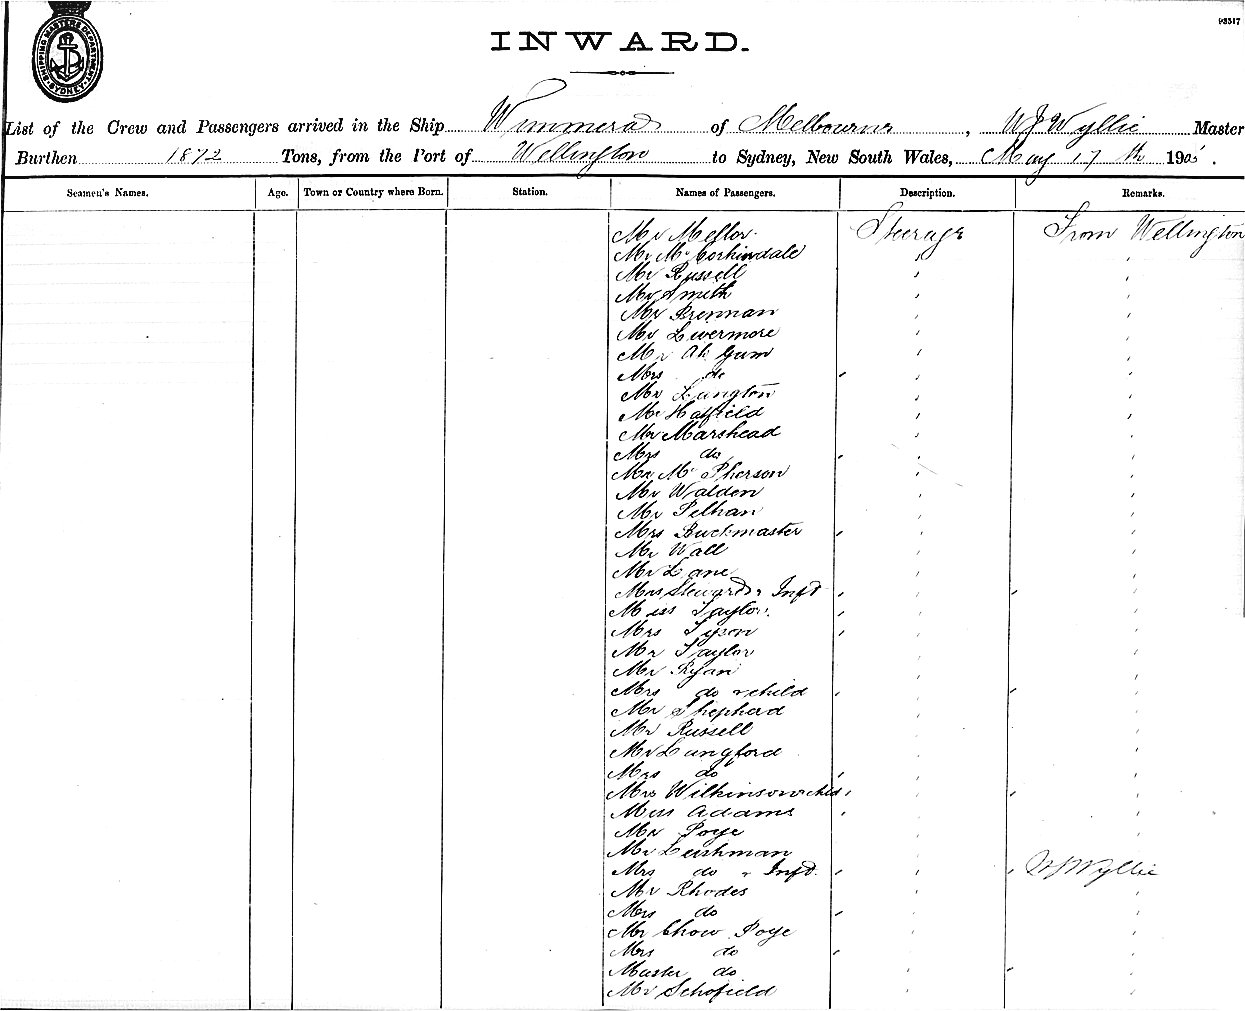 93517
SHIPPING MASTERS DEPARTMENT SYDNEY
INWARD.
List of the Crew and Passengers arrived in the Ship Wimmera of Melbourne, WJ Wyllie Master
Burthen 1872 Tons, from the Port of Wellington to Sydney, New South Wales, May 17th 1905.
Seamen's Names. Age. Town or Country where Born. Station. Names of Passengers. Description. Remarks.
Mr Mellor Steerage From Wellington
Mr McCorkindale " "
Mr Russell " "
Mr Smith " "
Mr Brennan " "
Mr Livermore " "
Mr Ah Gum " "
Mrs do " "
Mr Langton " "
Mr Hatfield " "
Mr Marshead " "
Mrs do " "
Mr McPherson " "
Mr Walden " "
Mr Pelhan " "
Mrs Buckmaster " "
Mr Wall " "
Mr Lane " "
Mrs Steward & Inft " "
Miss Taylor " "
Mrs Tyson " "
Mr Taylor " "
Mr Ryan " "
Mrs do & child " "
Mr Shepherd " "
Mr Russell " "
Mr Langford " "
Mrs do " "
Mrs Wilkinson & child " "
Miss Adams " "
Mr Poye " "
Mr Leishman " "
Mrs do & Inft " WJ Wyllie
Mr Rhodes " "
Mrs do " "
Mr Chow Poye " "
Mrs do " "
Master do " "
Mr Schofield " "